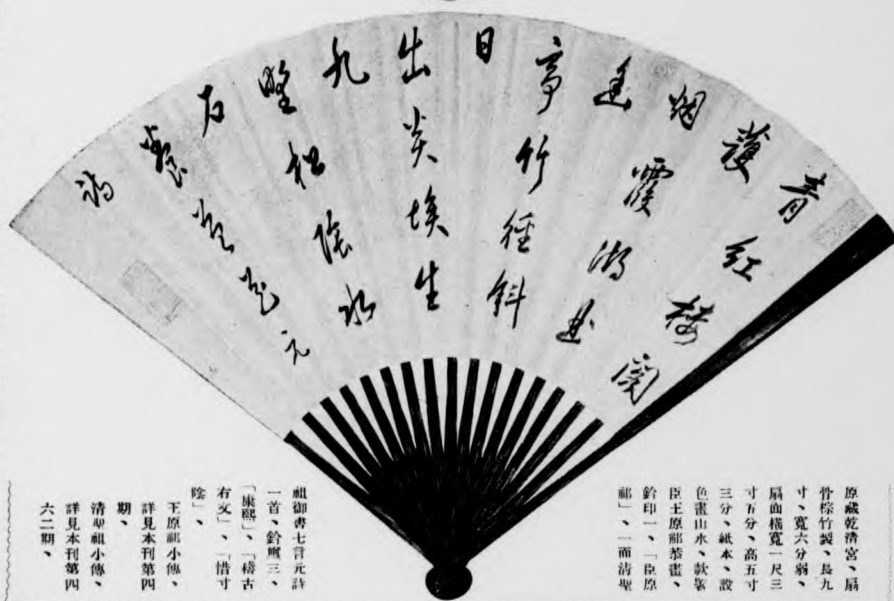 青紅樓閣
護
烟霞湖曲
亭竹徑斜
日
出炎埃生
九
野松陰水
石
元
詩
原藏乾清宮、扇
骨棕竹製、長九
寸、寬六分弱、
扇面橫寬一尺三
寸五分、高五寸
三分、紙本、設
色畫山水、款署
臣王原祁恭畫、
鈐印一、「臣原
祁」、一面清聖
祖御書七言元詩
一首、鈐璽三、
「康熙」、「稽古
右文」、「惜寸
陰」、
王原祁小傳、
詳見本刊第四
期、
清聖祖小傳、
詳見本刊第四
六二期、